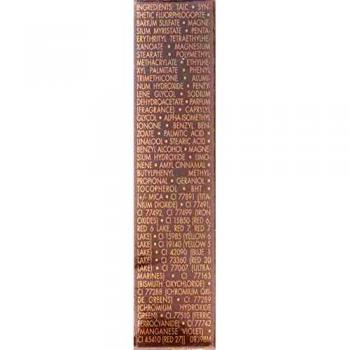 INGREDIENTS: TALC • SYN-
THETIC FLUORPHLOGOPITE •
BARIUM SULFATE • MAGNE-
SIUM MYRISTATE • PENTA-
ERYTHRITYL TETRAETHYLHE-
XANOATE • MAGNESIUM
STEARATE • POLYMETHYL
METHACRYLATE • ETHYLHE-
XYL PALMITATE • PHENYL
TRIMETHICONE • ALUMI-
NUM HYDROXIDE • PENTY-
LENE GLYCOL • SODIUM
DEHYDROACETATE • PARFUM
(FRAGRANCE) • CAPRYLYL
GLYCOL • ALPHA-ISOMETHYL
IONONE • BENZYL BEN-
ZOATE • PALMITIC ACID •
LINALOOL • STEARIC ACID •
BENZYL ALCOHOL • MAGNE-
SIUM HYDROXIDE • LIMO-
NENE • AMYL CINNAMAL •
BUTYLPHENYL METHYL-
PROPIONAL • GERANIOL •
TOCOPHEROL • BHT •
[+/- MICA • CI 77891 (TITA-
NIUM DIOXIDE) • CI 77491,
CI 77492, CI 77499 (IRON
OXIDES) • CI 15850 (RED 6,
RED 6 LAKE, RED 7, RED 7
LAKE) • CI 15985 (YELLOW 6
LAKE) • CI 19140 (YELLOW 5
LAKE) • CI 42090 (BLUE 1
LAKE) • CI 73360 (RED 30
LAKE) • CI 77007 (ULTRA-
MARINES) • CI 77163
(BISMUTH OXYCHLORIDE) •
CI 77288 (CHROMIUM OXI-
DE GREENS) • CI 77289
(CHROMIUM HYDROXIDE
GREEN) • CI 77510 (FERRIC
FERROCYANIDE) • CI 77742
(MANGANESE VIOLET) •
CI 45410 (RED 27)]